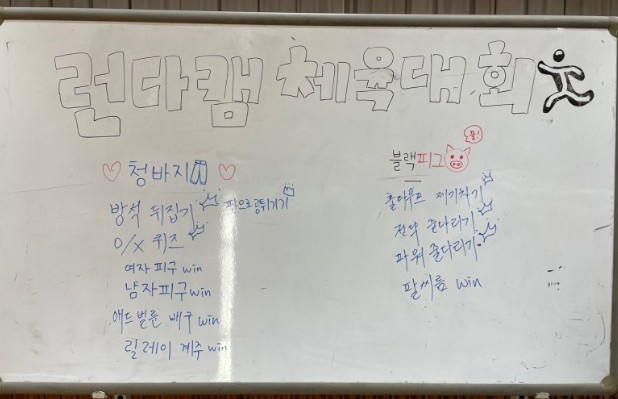 런다캠 체육대회
청바지
방석 뒤집기
O/X 퀴즈
여자 피구 win
남자피구 win
애드벌룬 배구 win
릴레이 계주 win
블랙피그
훌라후프 제기차기
전략 줄다리기
파워 줄다리기
팔씨름 win